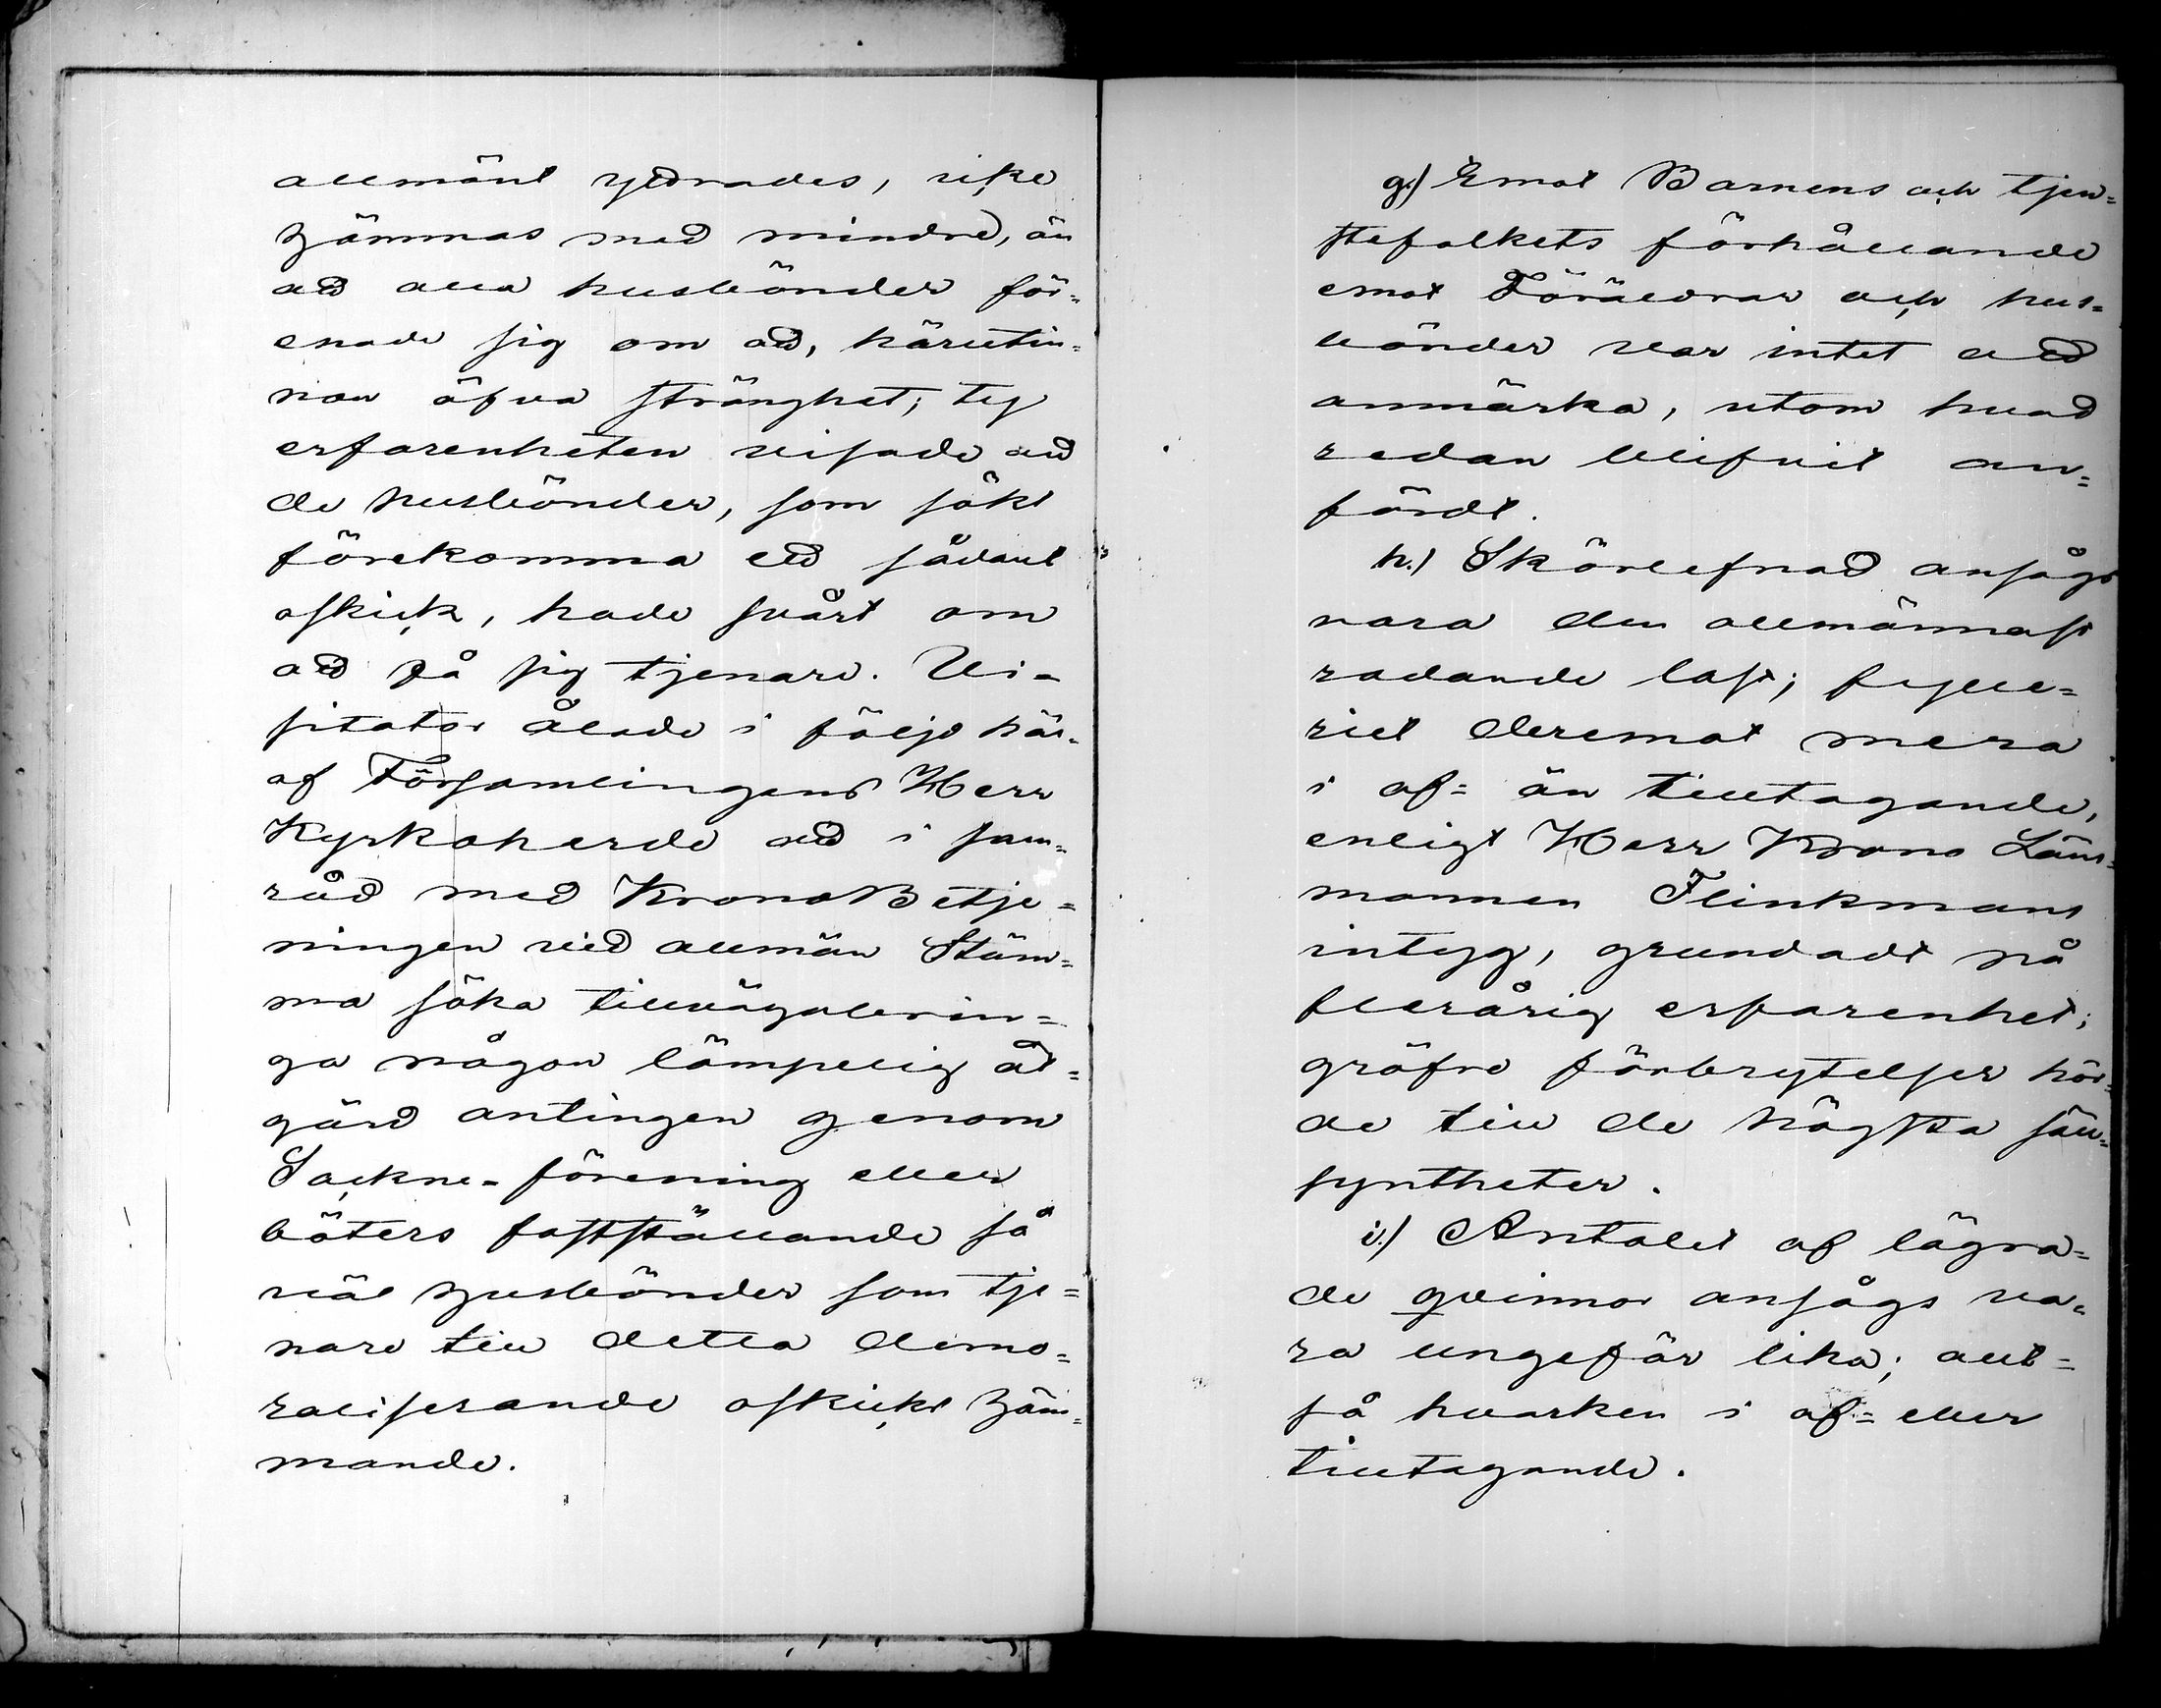 allmänt yttrades, icke
hämmas med mindre, än
att alla husbönder för=
enade sig om att, härutin=
nan öfva stränghet; ty
erfarenheten visade att
de husbönder, som sökt
förekomma ett sådant
oskick, hade svårt om
att få sig tjenare. Vi=
sitator ålade i följe här=
af Församlingens Herr
Kyrkoherde att i sam=
råd med KronoBetje=
ningen vid allmän Stäm=
ma söka tillvägabrin=
ga någon lämpelig åt=
gärd antingen genom
Sockne-förening eller
böters fastställande så
väl husbönder som tje=
nare till detta demo=
raliserande oskicks häm=
mande.
g.) Emot Barnens och tjen=
stefolkets förhållande
emot Föräldrar och hus=
bönder var intet att
anmärka, utom hvad
redan blifvit an=
fördt.
h.) Skörlefnad ansågs
vara den allmännast
radande last; fylle=
riet deremot mera
i af= än tilltagande,
enligt Herr Krono Läns=
mannen Flinkmans
intyg, grundadt på
flerårig erfarenhet;
gröfre förbrytelser hör=
de till de högsta säll=
syntheter.
i.) Antalet af lägra=
de qvinnor ansågs va=
ra ungefär lika; allt=
så hvarken i af= eller
tilltagande.